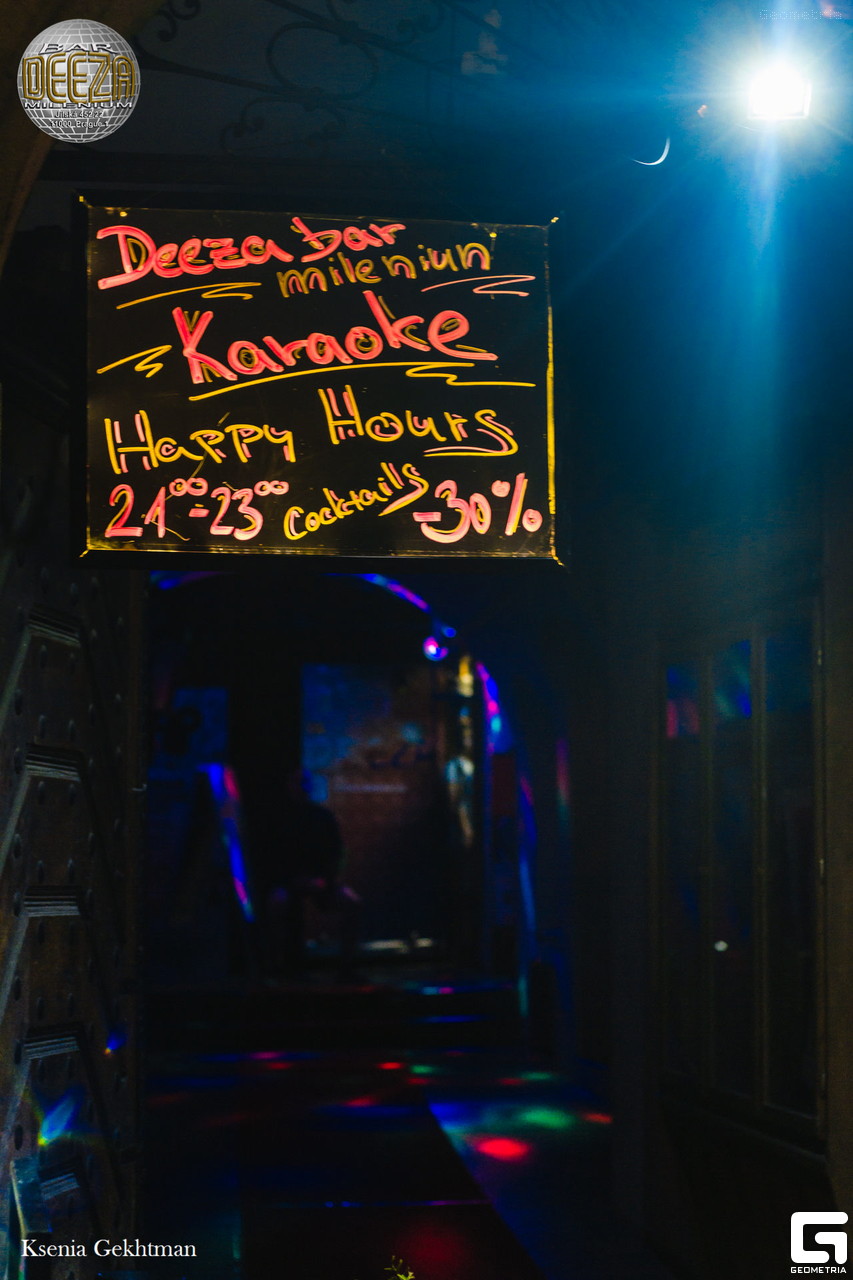 Geometria
BAR
DEEZA
MILENIUM
11000 Prague 1
Deeza bar
mileniun
Karaoke
Happy Hours
21⁰⁰-23⁰⁰ Cocktails -30%
Ksenia Gekhtman
GEOMETRIA